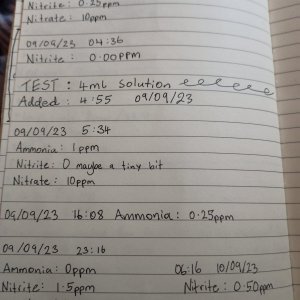 Nitrite: 0.25ppm
Nitrate: 10ppm
09/09/23 04:36
Nitrite: 0.00ppm
TEST: 4ml solution
Added: 4:55 09/09/23
09/09/23 5:34
Ammonia: 1ppm
Nitrite: 0 maybe a tiny bit
Nitrate: 10ppm
09/09/23 16:08 Ammonia: 0.25ppm
09/09/23 23:16
Ammonia: 0ppm 06:16 10/09/23
Nitrite: 1.5ppm Nitrite: 0.50ppm